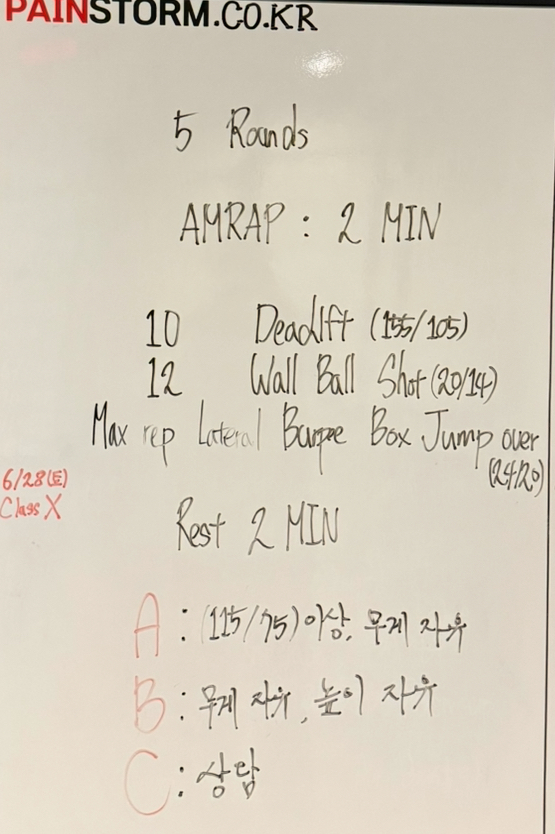 PAINSTORM.CO.KR
5 Rounds
AMRAP : 2 MIN
10 Deadlift (155/105)
12 Wall Ball Shot (20/14)
Max rep Lateral Burpee Box Jump over
(24/20)
6/28(토)
Class X
Rest 2 MIN
A : (115/75) 이상, 무게 자유
B : 무게 자유, 높이 자유
C : 상담